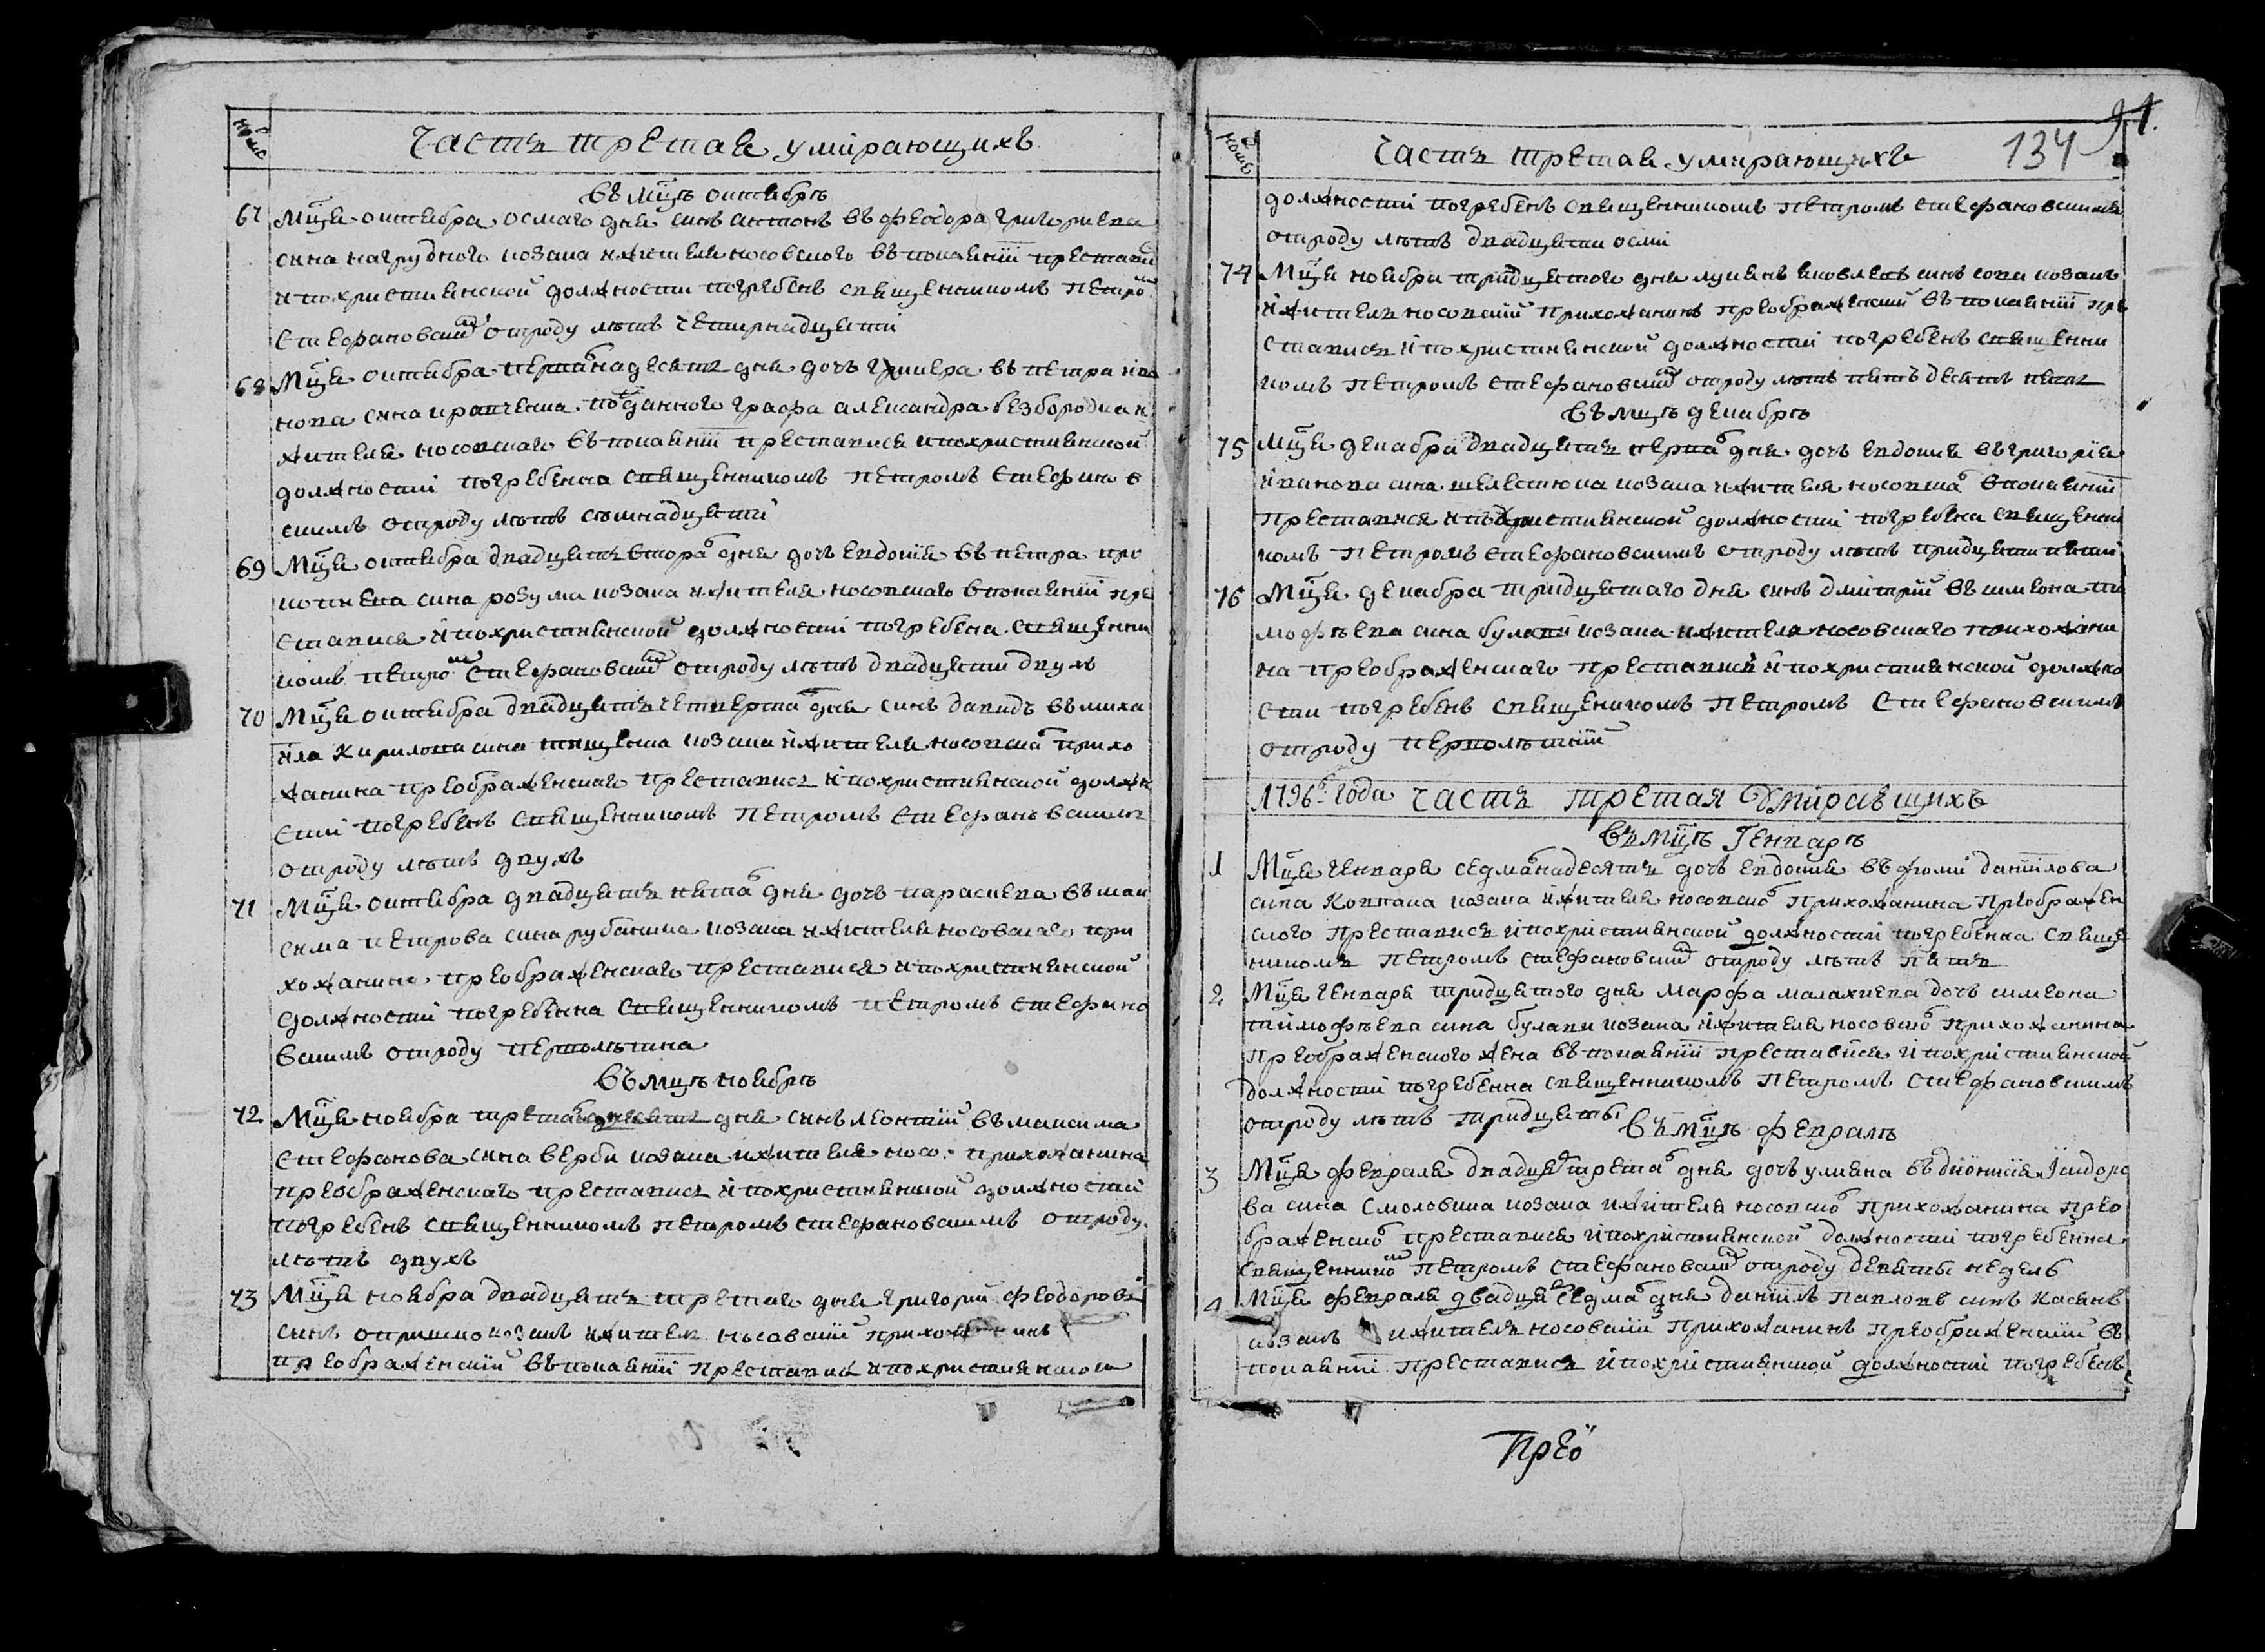 Часть третая умирающихъ
Въ мцѣ октябрѣ
67 Мца октября осмаго дня синъ антонъ въ феодора григориева
сина нагрудного козака жителя носовского въ покаянїи престави
и похристиянской должности погребенъ священникомъ петро
стефановским отроду лѣтъ четирнадцяти
68 Мца октября первонадесять дня дочъ въ петра ива
нова сина кравченка подданного графа александра безбородка
жителя носовского въ покаянїи преставися и похристиянской
должности погребенна священникомъ петромъ стефанов
скимъ отроду лѣтъ семнадцяти
69 Мца октября двадцять второ дня дочъ евдокия въ петра про
копиева сина розума козака жителя носовского в покаянїи пре
ставися и похристиянской должности погребена священни
комъ петро стефановским отроду лѣтъ двадцяти двухъ
70 Мца октября двадцять четверта дня синъ давидъ въ миха
ила кирилова сина тищенка козака жителя носовска прихо
жанина преображенскаго преставися и похристиянской должно
сти погребенъ священникомъ петромъ стефановскимъ
отроду лѣтъ двухъ
71 Мца октября двадцять пята дня дочъ параскева въ мак
сима петрова сина рубанка козака жителя носовскаго при
хожанина преображенскаго преставися и похристиянской
должности погребенна священникомъ петромъ стефано
вскимъ отроду перволѣтна
Въ мцѣ ноябрѣ
72 Мца ноября дня синъ леонтїй въ максима
стефанова сина верби козака жителя носо: прихожанина
преображенскаго преставися и похристиянской должности
погребенъ священникомъ петромъ стефановскимъ отроду
лѣтъ двухъ
73 Мца ноября двадцять третаго дня григорий феодоровъ
синъ козакъ житель носовский прихожанинъ
преображенский въ покаянїи преставися и похристиянской
Часть третая умирающихъ 134
91.
должности погребенъ священникомъ петромъ стефановскимъ
отроду лѣтъ двадцяти осми
74 Мца ноября тридцятого дня лукянъ яковлевъ синъ сова козакъ
житель носовский прихожанинъ преображенский въ покаянїи пре
ставися и похристиянской должности погребенъ священни
комъ петромъ стефановским отроду лѣтъ пятъдесятъ пять
Въ мцѣ декабрѣ
75 Мца декабра двадцять перва дня дочъ евдокия въ григорїя
иванова сина шелестюка козака жителя носовска в покаянїи
преставися и похристиянской должности погребена священни
комъ петромъ стефановскимъ отроду лѣтъ тридцяти пяти
76 Мца декабра тридцятаго дня синъ дмитрїй въ симеона ти
мофѣева сина булави козака жителя носовскаго прихожани
на преображенскаго преставися и похристиянской должно
сти погребенъ священикомъ петромъ стефановскимъ
отроду перволѣтнїй
1796 года Часть третая Умиравщихъ
Въ мцѣ Генварѣ
1 Мца генваря седмонадесять дочъ евдокия въ фоми данїилова
сина ковпака козака жителя носовско прихожанина преображен
ского преставися и похристиянской должности погребенна свяще
никомъ петромъ стефановским отроду лѣтъ пять
2 Мца генваря тридцятого дня марфа малахиева дочъ симеона
тимофѣева сина булави козака жителя носовско прихожанина
преображенского жена въ покаянїи преставися и похристиянской
должности погребенна священникомъ петромъ стефановскимъ
отроду лѣтъ тридцяты
Въ мцѣ февралѣ
3 Мца февраля двадця трета дня дочъ уляна въ дионисия исидоро
ва сина смоловика козака жителя носовско прихожанина прео
браженско преставися и похристиянской должности погребенна
священнико петромъ стефановским отроду девяты неделъ
4 Мца февраля двадця седма дня данїилъ павловъ синъ касянъ
козакъ житель носовский прихожанинъ преображенский въ
покаянїи преставися и похристиянской должности погребенъ
Прео